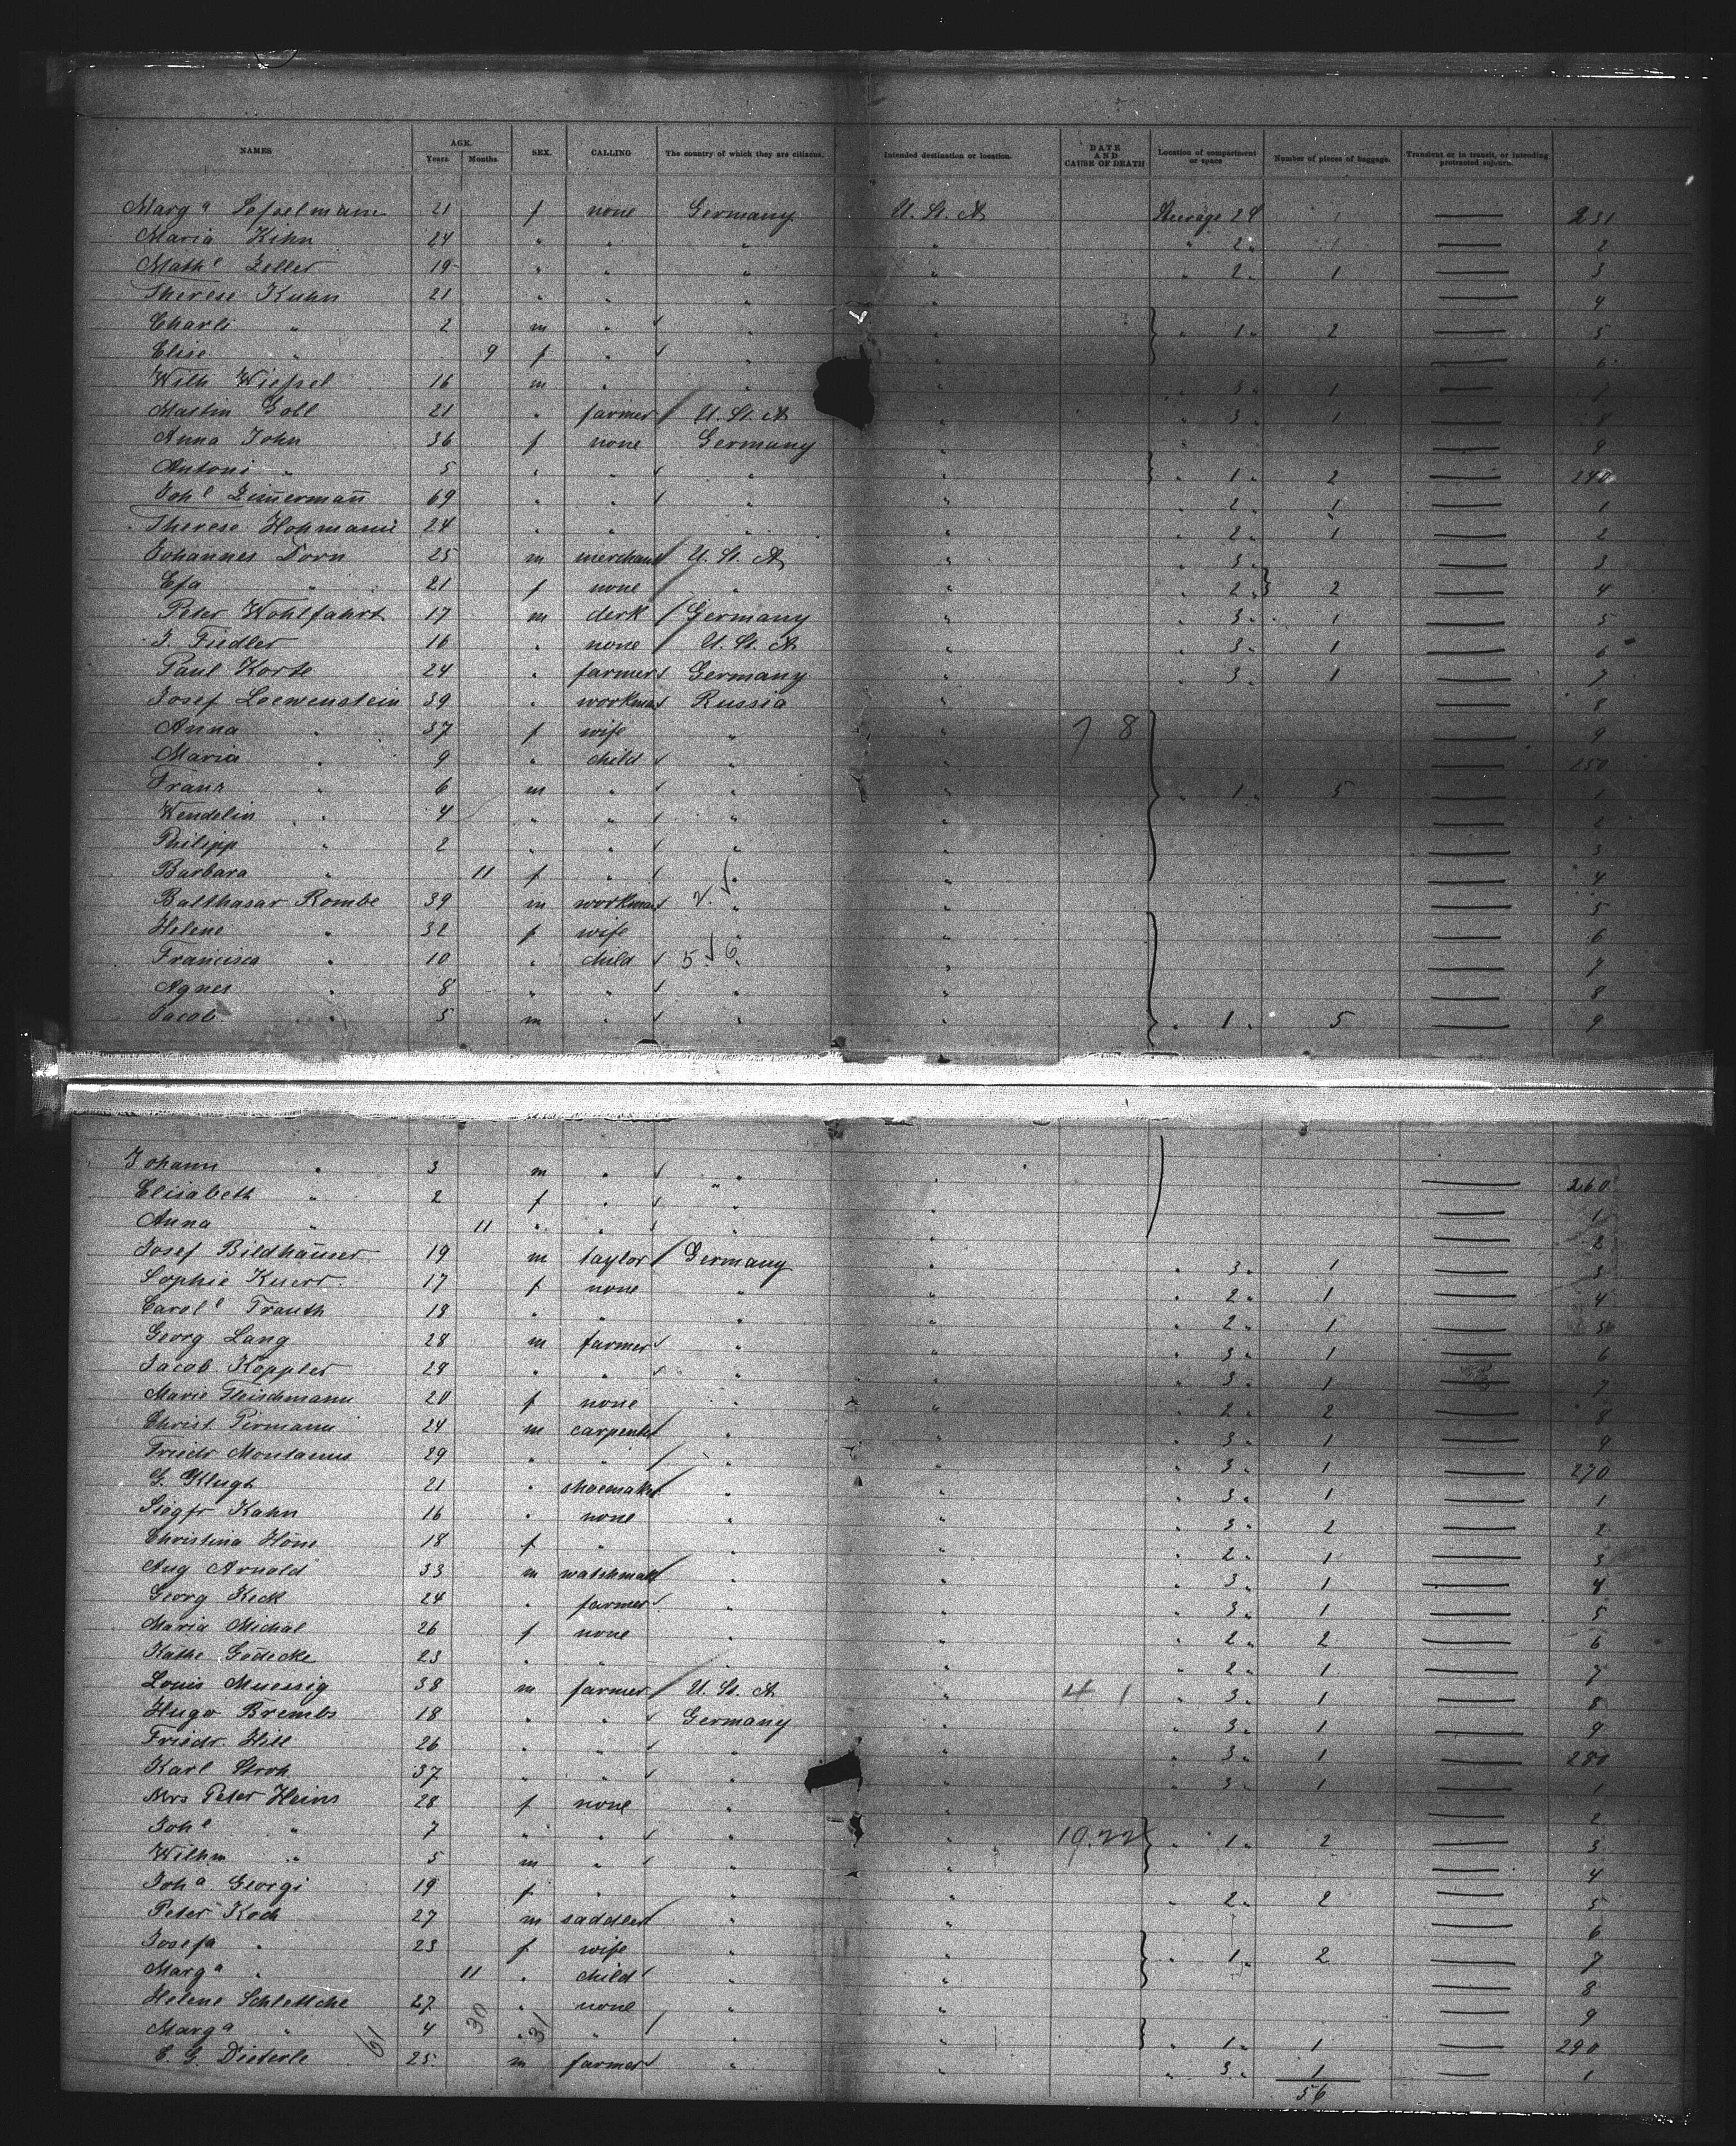 NAMES AGE. Years. Months. SEX. CALLING The country of which they are citizens. Intended destination or location. DATE AND CAUSE OF DEATH Location of compartment or space Number of pieces of baggage. Transient or in transit, or intending protracted sojourn.
Marg a 21 f none Germany U. St. A Steerage 231
Maria Kihn 24 " " " " " 2 " 1 — 2
Math l Zeller 19 " " " " " 2 " 1 — 3
Therese Kuhn 21 " " " " — 4
Charli " 2 m " " " " 1 " 2 — 5
Elise " 9 f " " " — 6
Wilh Wießel 16 m " " " " 3 " 1 — 7
Martin Goll 21 " farmer U. St. A " " 3 " 1 — 8
Anna John 36 f none Germany " — 9
Antoni " 5 " " " " " 1 " 2 — 240
Joh l Zimermañ 69 " " " " " 2 " 1 — 1
Therese Hohmann 24 " " " " " 2 " 1 — 2
Johannes Dorn 25 m merchant U. St. A " " 3 " — 3
Efa " 21 f none " " " 2 " 2 — 4
Peter Wohlfahrt 17 m clerk Germany " " 3 " 1 — 5
J. Fiedler 16 " none U. St. A " " 3 " 1 — 6
Paul Korte 24 " farmer Germany " " 3 " 1 — 7
Josef Loewenstein 39 " workman Russia " — 8
Anna " 37 f wife " " 7 8 — 9
Maria " 9 " child " " — 250
Franz " 6 m " " " " 1 " 5 — 1
Wendelin " 4 " " " " — 2
Philipp " 2 " " " " — 3
Barbara " 11 f " " " — 4
Balthasar Rombe 39 m workman " " — 5
Helene " 32 f wife " " — 6
Francisca " 10 " child 5. 6. " — 7
Agnes " 8 " " " " — 8
Jacob " 5 m " " " " 1 " 5 — 9
Johann " 3 m " " " — 260
Elisabeth " 2 f " " " — 1
Anna " 11 " " " " — 2
Josef Bildhäuser 19 m taylor Germany " " 3 " 1 — 3
Sophie 17 f none " " " 2 " 1 — 4
Carol l Trauth 18 " " " " " 2 " 1 — 5
Georg Lang 28 m farmer " " " 3 " 1 — 6
Jacob Keppler 29 " " " " " 3 " 1 — 7
Marie Fleischmann 20 f none " " " 2 " 2 — 8
Christ. Pirmann 24 m carpenter " " " 3 " 1 — 9
Friedr Montanus 29 " " " " " 3 " 1 — 270
G. Klugh 21 " shoemaker " " " 3 " 1 — 1
Siegfr Kahn 16 " none " " " 3 " 2 — 2
Christina Höne 18 f " " " " 2 " 1 — 3
Aug Arnold 33 m watchmak " " " 3 " 1 — 4
Georg Keck 24 " farmer " " " 3 " 1 — 5
Maria Michal 26 f none " " " 2 " 2 — 6
Kathe Gödecke 23 " " " " " 2 " 1 — 7
Louis Muessig 38 m farmer U. St. A " 4 1 " 3 " 1 — 8
Hugo Brembs 18 " " Germany " " 3 " 1 — 9
Friedr Hill 26 " " " " " 3 " 1 — 280
Karl Stroh 37 " " " " " 3 " 1 — 1
Mrs Peter Heins 28 f none " " — 2
Joh l " 7 " " " " 19.22 " 1 " 2 — 3
Wilhm " 5 m " " " — 4
Joh a Georgi 19 f " " " " 2 " 2 — 5
Peter Koch 27 m saddler " " — 6
Josefa " 23 f wife " " " 1 " 2 — 7
Marg a " 11 " child " " — 8
Helene Schlettche 27 " none " " — 9
Marg a " 4 " " " " " 1 " 1 — 290
61 30 31
E. G. Dieterle 25 m farmer " " " 3 " 1 — 1
56